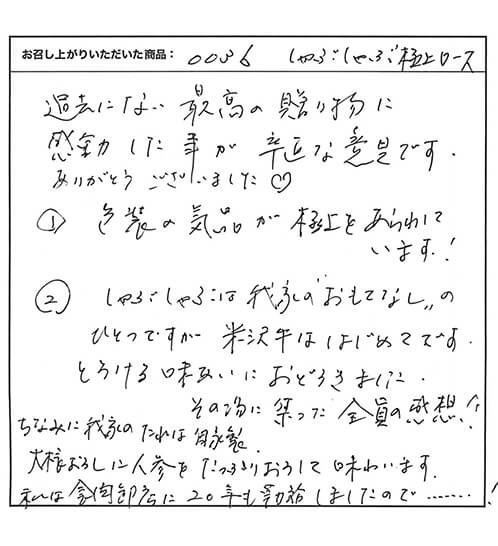 お召し上がりいただいた商品： 0036 しゃぶしゃぶ極上ロース
過去にない 最高の贈り物に
感動した事が 率直な意見です.
ありがとう ございました♡
① 包装の気品が 極上をあらわして
います.!
② しゃぶしゃぶは我家の"おもてなし"の
ひとつですが 米沢牛ははじめてです.
とろける味わいにおどろきました.
その場に集った全員の感想!!
ちなみに我家のたれは自家製.
大根おろしに人参をたっぷりおろして味わいます.
私は 食肉卸店に20年も勤務しましたので........!